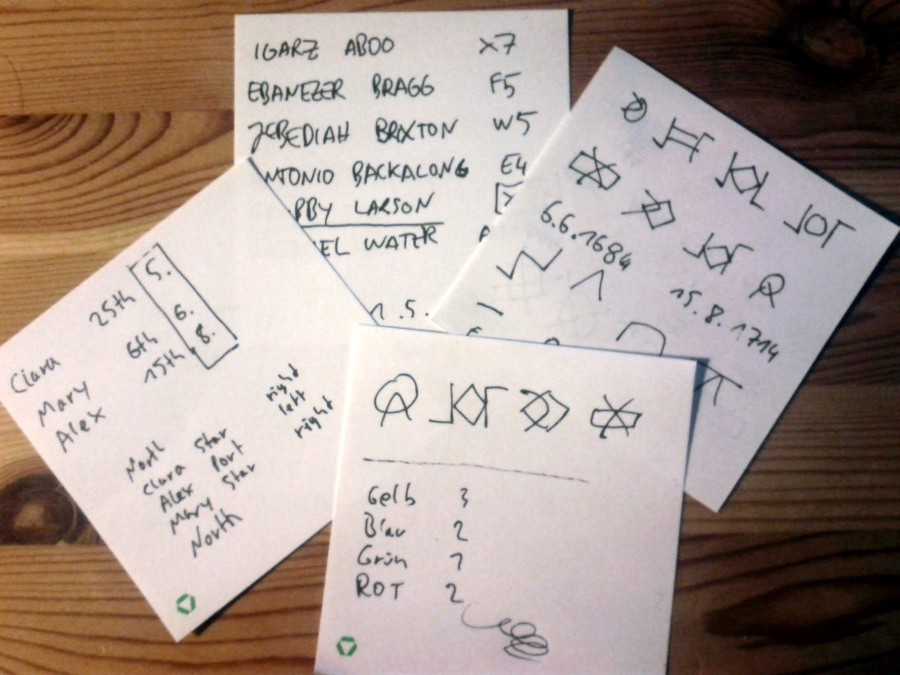 IGARZ ABOO X7
EBANEZER BRAGG F5
JEBEDIAH BRIXTON W5
NTONIO BACKALONG E4
BBY LARSON
EL WATER
1.5.
6.6.1684
15.8.1714
Clara 25th 5.
Mary 6th 6.
Alex 15th 8.
North
Clara Star right
Alex Port left
Mary Star right
North
Gelb 3
Blau 2
Grün 1
ROT 2